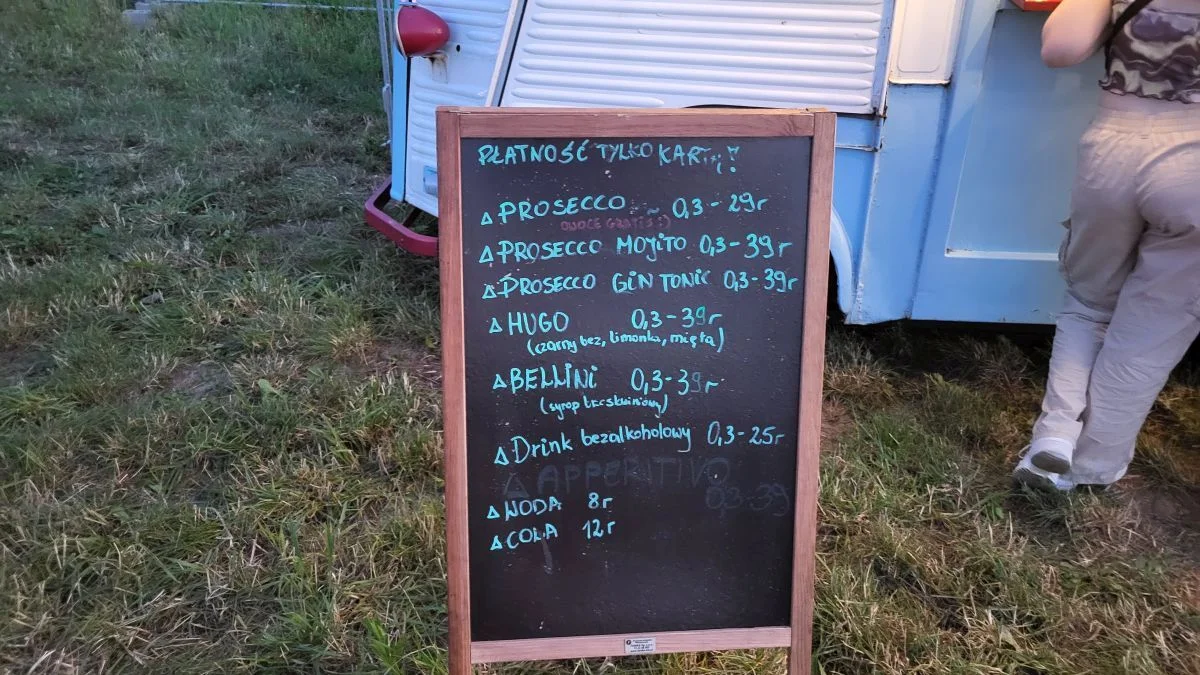 PŁATNOŚĆ TYLKO
△ PROSECCO 0,3 - 29r
OWOCE GRATIS :)
△ PROSECCO MOJITO 0,3 - 39r
△ PROSECCO GIN TONIC 0,3 - 39r
△ HUGO 0,3 - 39r
(czarny bez, limonka, mięta)
△ BELLINI 0,3 - 39r
(syrop brzoskwiniowy)
△ Drink bezalkoholowy 0,3 - 25r
△ APPERITIVO
0,3 - 39
△ WODA 8r
△ COLA 12r